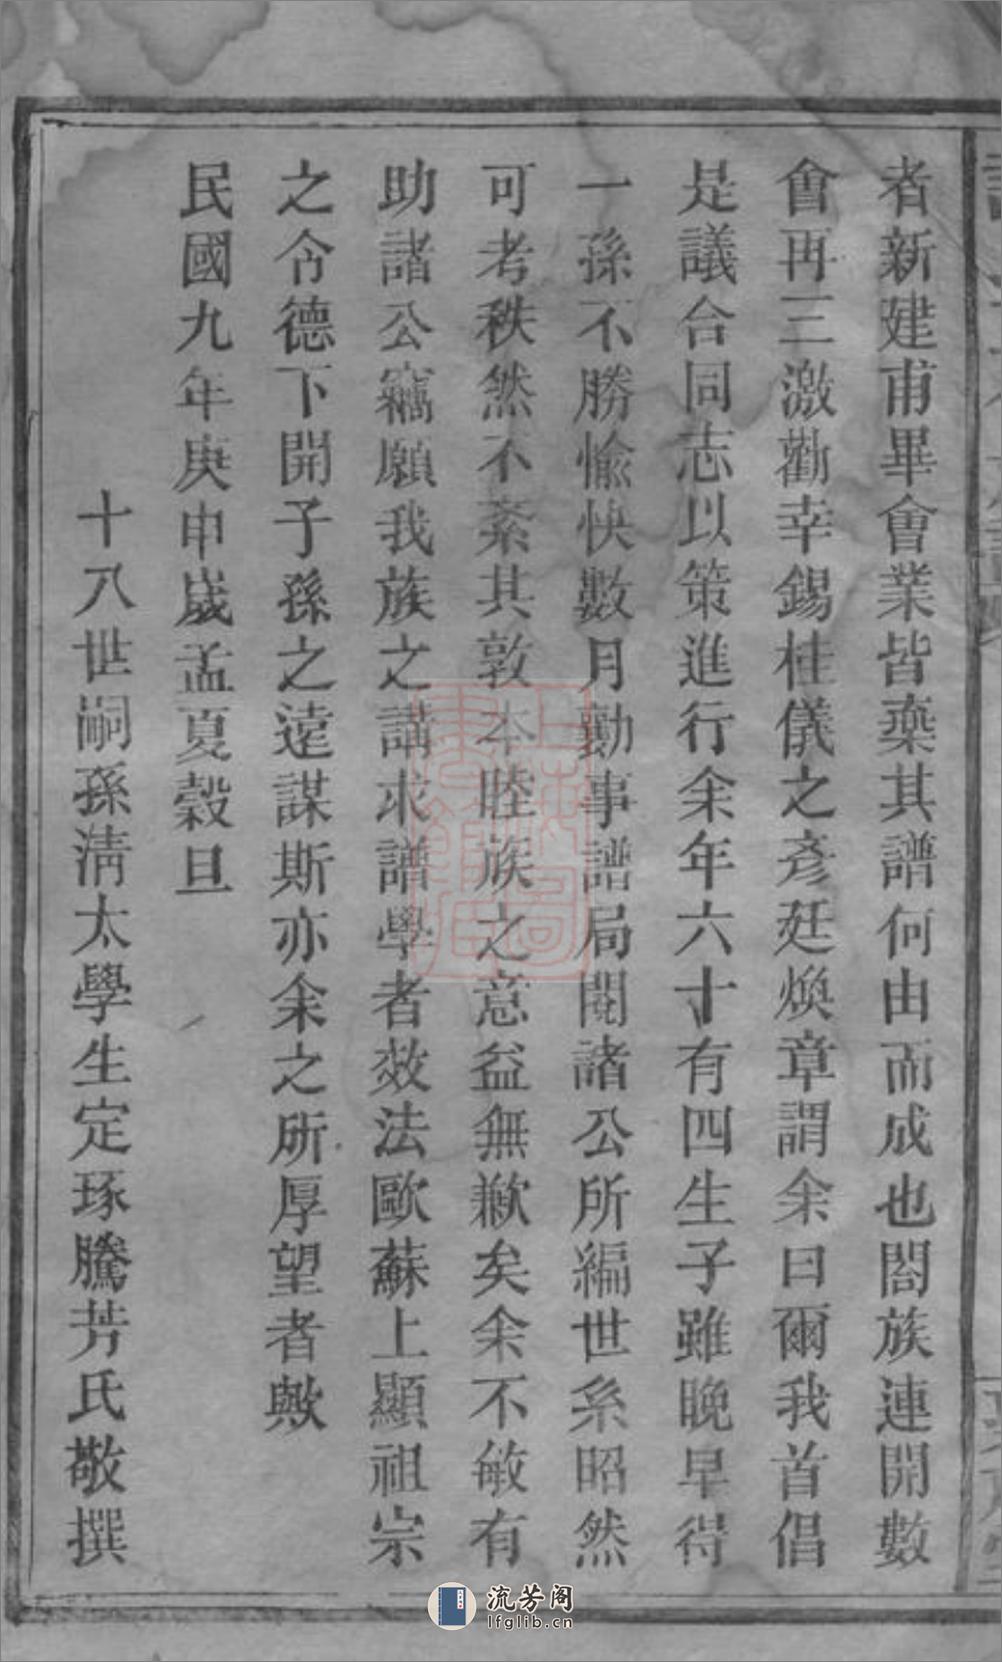 者新建甫畢會業皆藥其譜何由而成也閤族連開數
會再三激勸幸錫桂儀之彥廷煥章謂余曰爾我首倡
是議合同志以策進行余年六十有四生子雖晚早得
一孫不勝愉快數月勤事譜局閱諸公所編世系昭然
可考秩然不紊其敦本睦族之意益無歉矣余不敏有
助諸公竊願我族之講求譜學者效法歐蘇上顯祖宗
之令德下開子孫之遠謀斯亦余之所厚望者歟
民國九年庚申歲孟夏穀旦
十八世嗣孫淸太學生定琢騰芳氏敬撰
上海圖書館藏
流芳阁
lfglib.cn